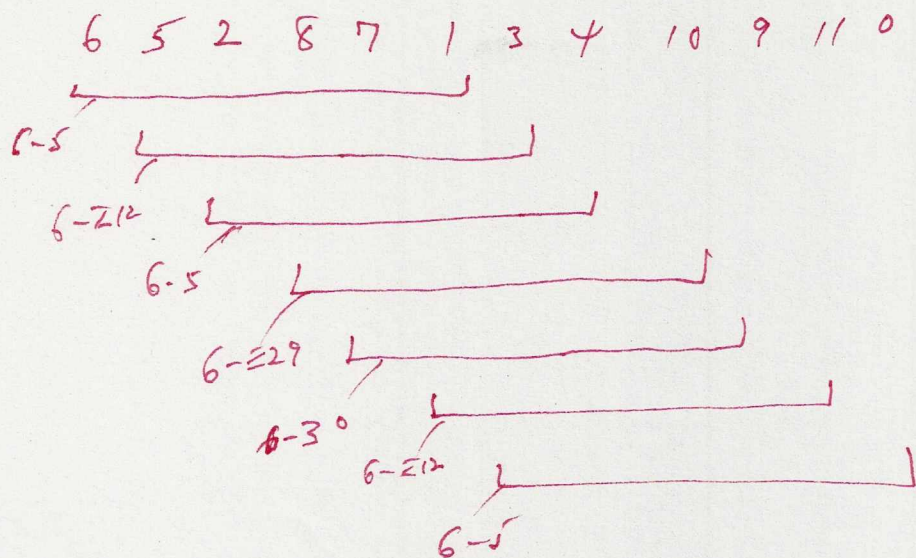 6 5 2 8 7 1 3 4 10 9 11 0
6-5
6-Z12
6-5
6-Z29
6-30
6-Z12
6-5